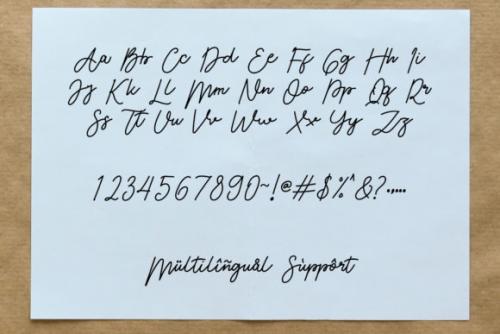 Aa Bb Cc Dd Ee Ff Gg Hh Ii
Jj Kk Ll Mm Nn Oo Pp Qq Rr
Ss Tt Uu Vv Ww Xx Yy Zz
1234567890~!@#$%^&?.,...
Mültilîñguål Sùppôrt